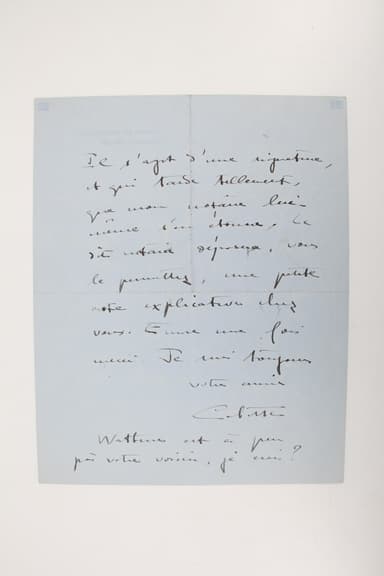 Il s'agit d'une signature,
et qui tarde tellement,
que mon notaire lui-
même s'en étonne. Le
dit notaire déposera, vous
le permettez, une petite
note explicative chez
vous. Encore une fois
merci. Je suis toujours
votre amie
Colette
Wattinne est à peu
près votre voisin, je crois ?